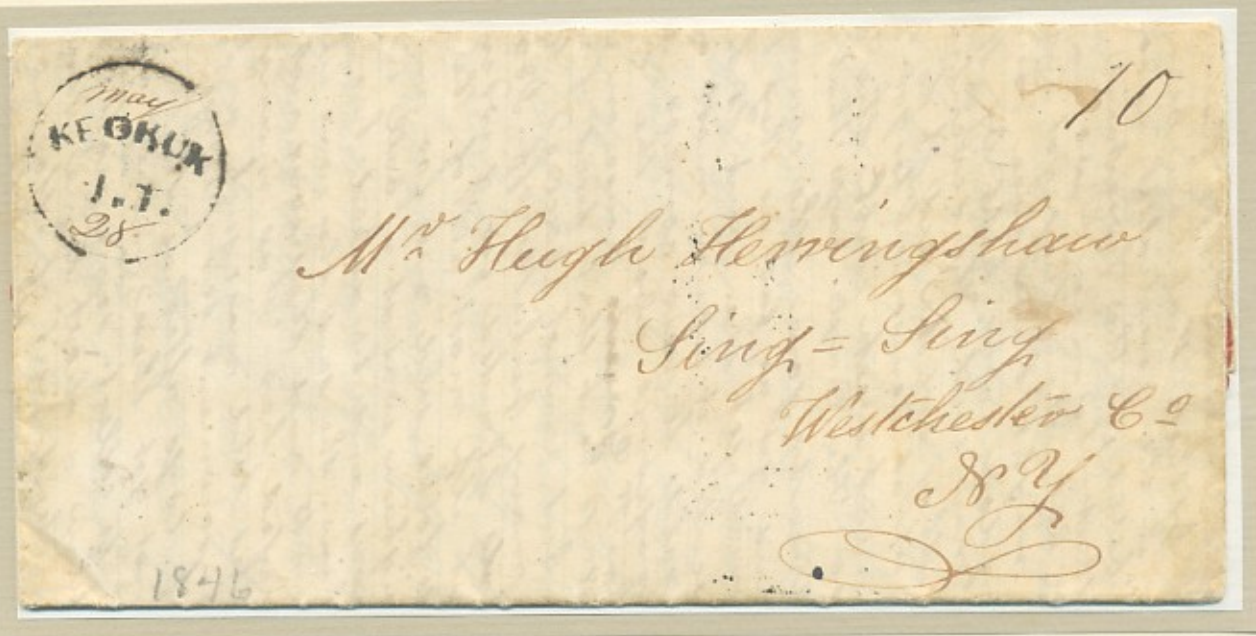 may
KEOKUK
I.T.
28
10
Mr Hugh Herringshaw
Sing = Sing
Westchester Co
N Y
1846